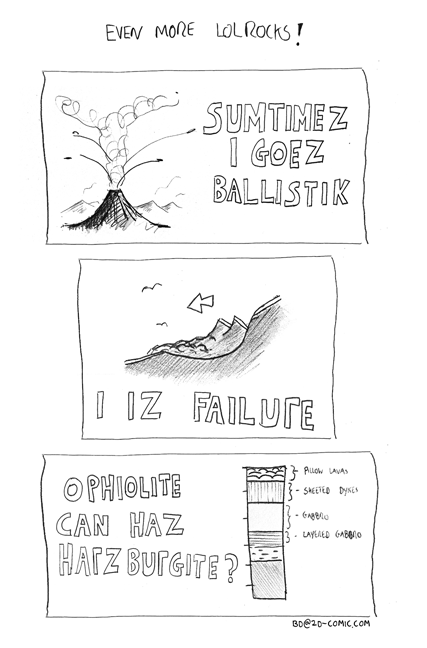 EVEN MORE LOLROCKS!
SUMTIMEZ
I GOEZ
BALLISTIK
I IZ FAILURE
OPHIOLITE
CAN HAZ
HARZBURGITE?
PILLOW LAVAS
- SHEETED DYKES
- GABBRO
- LAYERED GABBRO
BD@2D-COMIC.COM